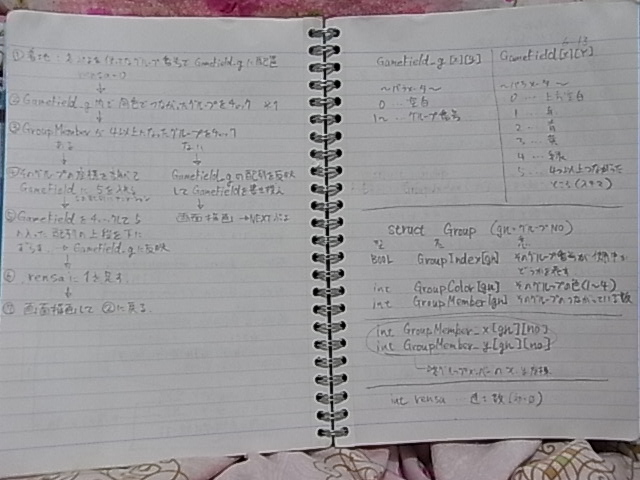 ① 着地:
Gamefield_gに配置
↓
② Gamefield_g内で同色でつながったグループをチェック ※1
↓
③ GroupMemberが4以上になったグループをチェック
ある ない
↓ ↓
④ そのグループの座標を
Gamefieldに5を入れる
Gamefield_gの配列を反映
してGamefieldを書き換え
↓ ↓
⑤ Gamefieldをチェックして5
の入った配列の上段を下に
ずらす → Gamefield_gに反映
画面描色 → NEXTぷよ
↓
⑥ rensaに1を足す
↓
⑦ 画面描色して②に戻る
6-13
Gamefield_g[x][y] Gamefield[X][Y]
~パラメータ~ ~パラメータ~
0 … 空白 0 … 空白
1~ … グループ番号 1 … 赤
2 … 青
3 … 黄
4 … 緑
5 … 4つ以上つながった
ところ
struct Group (gn=グループNO)
BOOL GroupIndex[gn] そのグループ番号が使用中か
どうかを示す
int GroupColor[gn] そのグループの色(1~4)
int GroupMember[gn] そのグループのつながっている数
int GroupMember_x[gn][no]
int GroupMember_y[gn][no]
各グループメンバーのX・Y座標
int rensa 連鎖数